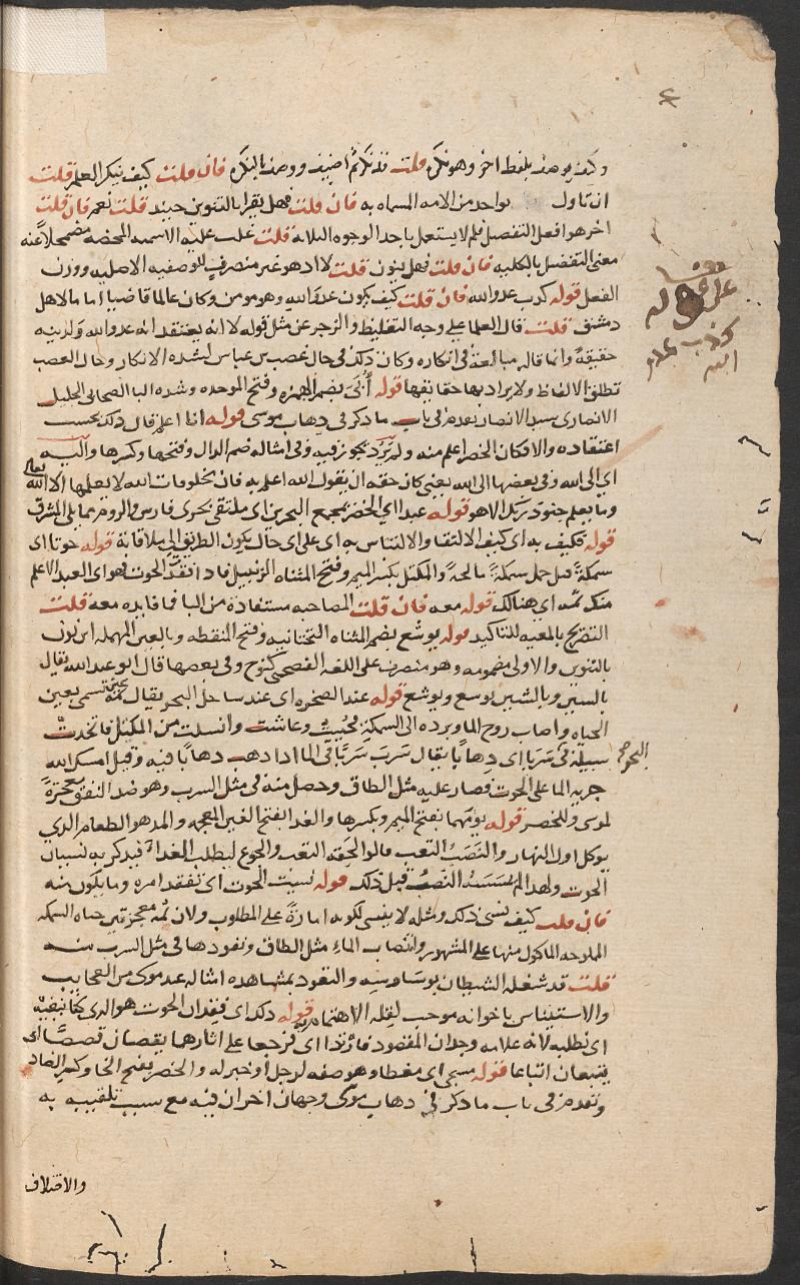 وكيف يوصف بلفظ اخر وهو نكره قلت قد نكر ثم اضيف ووصف بالنكره فان قلت كيف نكر العلم قلت
ان تاول بواحد من الامه المسماه به فان قلت فهل يقرا بالتنوين حينئذ قلت نعم فان قلت
اخر هو افعل التفضيل فلم لا يستعمل باحد الوجوه الثلاثه قلت غلب عليه الاسميه المحضه مضمحلا عنه
معنى التفضيل بالكليه فان قلت فهل ينون قلت لا اذ هو غير منصرف للوصفيه الاصليه ووزن
الفعل قوله كذب عدو الله فان قلت كيف يكون عدو الله وهو مومن وكان عالما قاضيا اماما لاهل
دمشق قلت قال العلما على وجه التغليظ والزجر عن مثل قوله لا انه يعتقد انه عدو الله ولدينه
حقيقة وانما قاله مبالغة في انكاره وكان ذلك في حال غضب بن عباس لشده الانكار وحال الغضب
تطلق الالفاظ ولا يراد بها حقايقها قوله أُبَيّ بضم الهمزه وفتح الموحده وشده اليا الصحابى الجليل
الانصارى سيد الانصار تقدم في باب ما ذكر في ذهاب موسى قوله انا اعلم قال ذلك بحسب
اعتقاده والا فكان الخضر اعلم منه ولم يَرُدّ يجوز فيه وفي امثاله ضم الدال وفتحها وكسرها واليه
اي الى الله وفي بعضها الى الله يعنى كان حقه ان يقول الله اعلم به فان مخلوقات الله لا يعلمها الا الله تعالى
وما يعلم جنود ربك الا هو قوله عبدا اي الخضر بمجمع البحرين اى ملتقى بحرى فارس والروم مما يلى المشرق
قوله فكيف به اى كيف الالتقا والالتباس به اى على اى حال يكون الطريق الى ملاقاته قوله حوتا اى
سمكة قيل حمل سمكة مالحة والمكتل بكسر الميم وفتح المثناه الزنبيل فاذا فقد الحوت فهو اى العبد الاعلم
منك ثمه اي هنالك قوله معه فان قلت المصاحبه مستفادة من البا فما فايده معه قلت
التصريح بالمعيه للتاكيد قوله يوشع بضم المثناه التحتانيه وفتح المنقطه وبالعين المهمله ابن نون
بالتنوين والاولى مضمومه وهو منصرف على اللغه الفصحى كنوح وفي بعضها قال ابو عبد الله يقال
بالسين وبالشين يوسع ويوشع قوله عند الصخره اى عند ساحل البحر يقال ثمة عين تسمى بعين
الحياه واصاب روح الما وبرده الى السمكة فحييت وعاشت وانسلت من المكتل فاتخذت
سبيله في البحر سَرَبا اى ذهابا يقال سَرَبَ سَرَبًا في الما اذا ذهب ذهابا فيه وقيل امسك الله
جريه الما على الحوت فصار عليه مثل الطاق وحصل منه في مثل السرب وهو ضد النفق معجزة
لموسى وللخضر قوله يومهما بفتح الميم وبكسرها والغدا بفتح الغين المعجمه والمد هو الطعام الذي
يوكل اول النهار والنَصَبُ التعب قالوا لحقه التعب والجوع ليطلب الغدا فيذكر به نسيان
الحوت ولهذا لم يمسسه النَصَبُ قبل ذلك قوله نسيت الحوت اى تفقد امره وما يكون منه
فان قلت كيف نسى ذلك ومثله لا ينسى لكونه امارة على المطلوب ولان ثمة معجزتين حياه السمكه
المملوحه الماكول منها على المشهور وانتصاب الماء مثل الطاق ونفوذها في مثل السرب منه
قلت قد شغله الشيطان بوساوسه والتعود بمشاهده امثاله عند موسى من العجايب
والاستيناس باخوانه موجب لقله الاهتمام به قوله ذلك اى فقدان الحوت هو الذي كنا نبغيه
اى نطلبه لانه علامه وجدان المقصود فارتدا اى فرجعا على اثارهما يقصان قصصا اى
يتبعان اتباعا قوله مسجى اى مغطا وهو صفه لرجل او خبر له والخضر بفتح الخا وكسر الضاد
وتقدم في باب ما ذكر في ذهاب موسى وجهان اخران فيه مع سبب تلقيبه به
والاختلاف
على
كذب عدو
الله